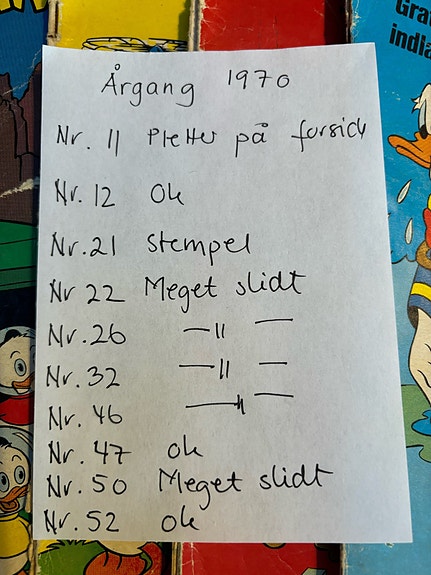 Årgang 1970
Nr. 11 Pletter på forside
Nr. 12 Ok
Nr. 21 Stempel
Nr 22 Meget slidt
Nr. 26 —||—
Nr. 32 —||—
Nr. 46 —||—
Nr. 47 ok
Nr. 50 Meget slidt
Nr. 52 ok
Grat
india